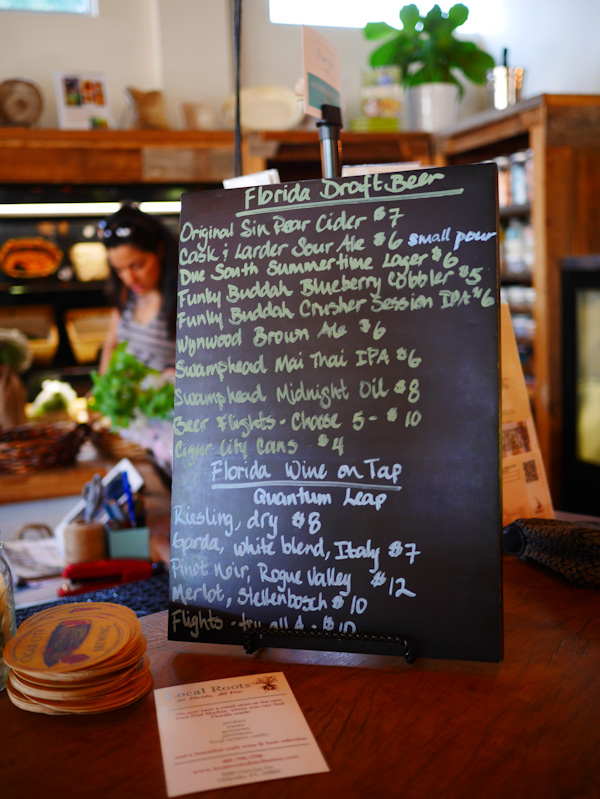 Florida Draft Beer
Original Sin Pear Cider $7
Cask & Larder Sour Ale $6 small pour
Due South Summertime Lager $6
Funky Buddah Blueberry Cobbler $5
Funky Buddah Crusher Session IPA $6
Wynwood Brown Ale $6
Swamphead Mai Thai IPA $6
Swamphead Midnight Oil $8
Beer Flights - Choose 5 - $10
Cigar City Cans $4
Florida Wine on Tap
Quantum Leap
Riesling, dry $8
Garda, white blend, Italy $7
Pinot Noir, Rogue Valley $12
Merlot, Stellenbosch $10
Flights - try all 4 - $10
Local Roots